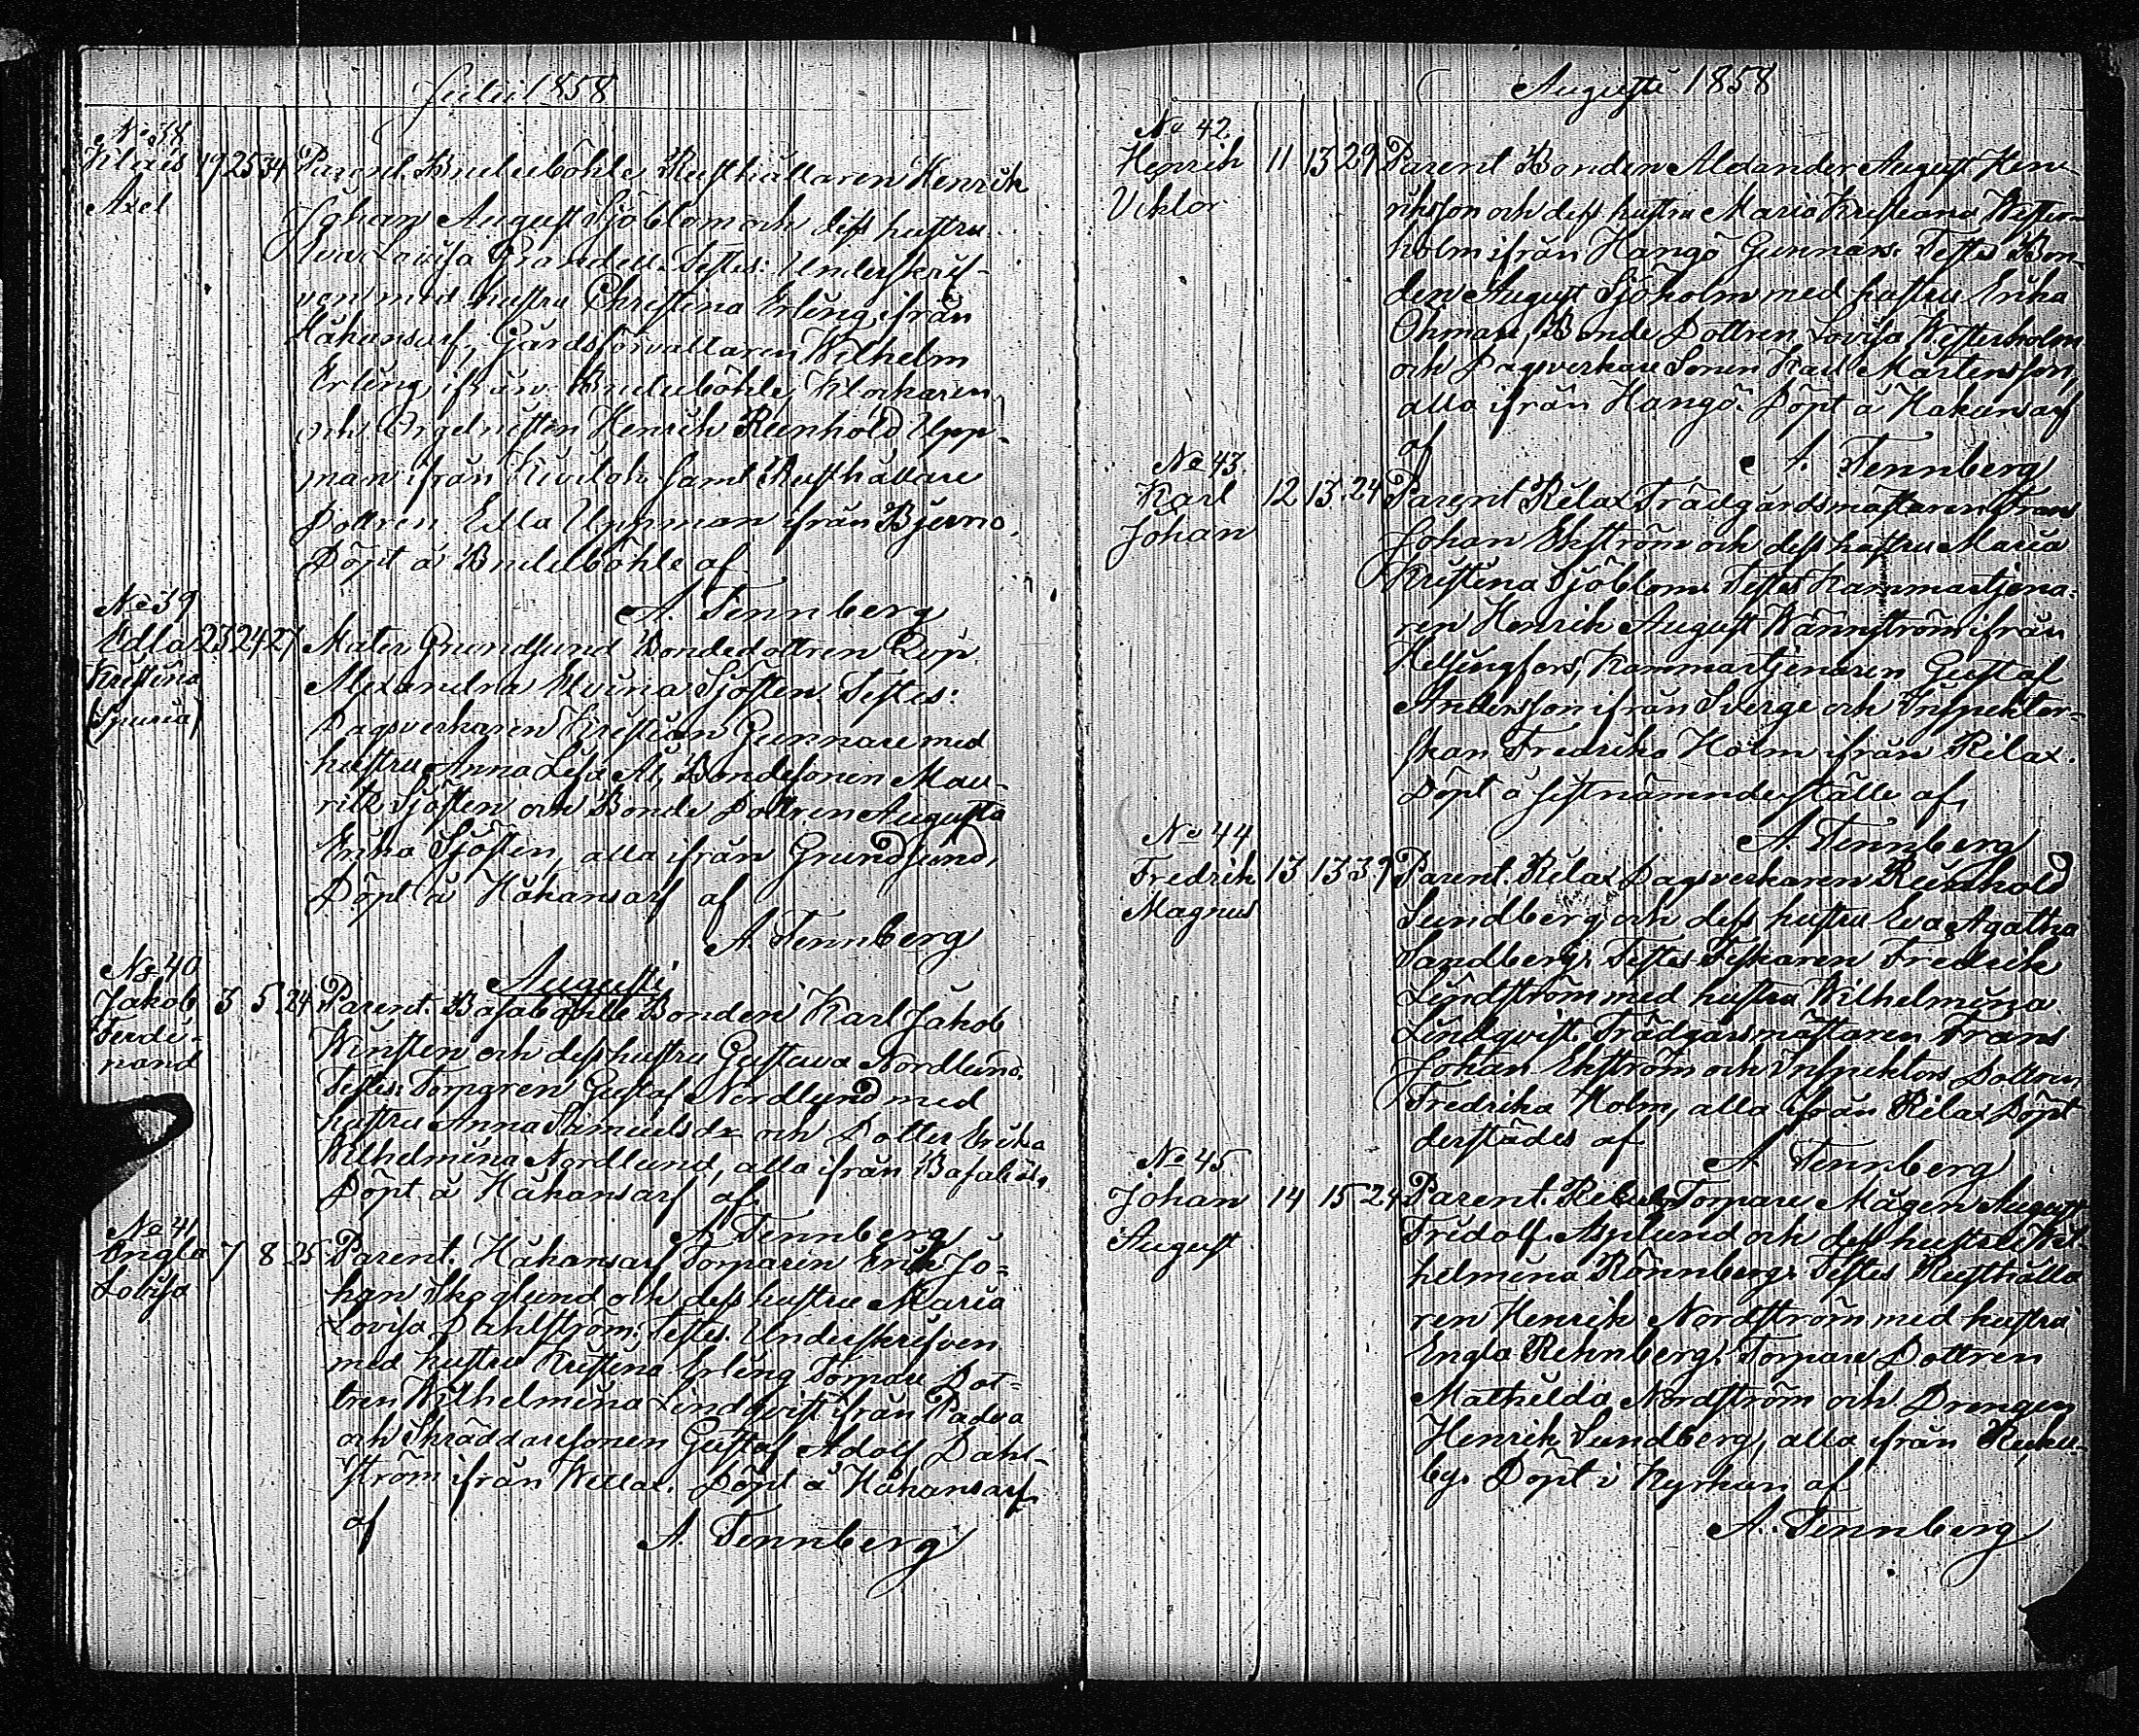 Julii 1858
No 38
Klaes 19 25 34 Parent. Knuleböhle Rusthållaren Henrik
Axel
Johan August Sjöblom och dess hustru
Eva Lovisa Grandell. Testes: Underskrif-
ven med hustru Christina Erling ifrån
Håkansarf, Gårdsförvaltaren Wilhelm
Erling ifrån Knuleböhle, Klockaren
och Orgelnisten Henrik Reinhold Upp-
man ifrån samt Rusthållare
Dottren Edla Uppman ifrån Bjerno.
Döpt å Knuleböhle af
A. Tennberg
No 39
Edla 23 24 27 Mater Grundsund Bondedottren Pig.
Kristina
(Spuria)
Alexandra Elvina Sjösten. Testes:
Dagsverkaren Kristian Gunnare med
hustru Anna Lisa Al, Bondesonen Mau-
ritz Sjösten och Bonde Dottren Augusta
Erika Sjösten, alla ifrån Grundsund,
Döpt å Håkansarf af
A. Tennberg
Augusti
No 40
Jakob 3 5 24 Parent. Bonden Karl Jakob
Ferdi-
nand
Winsten och dess hustru Gustava Nordlund.
Testes: Torparen Gustaf Nordlund med
hustru Anna Samuelsdr och Dotter Erika
Wilhelmina Nordlund, alla ifrån
Döpt å Håkansarf af
A. Tennberg
No 41
Engla 7 8 25 Parent. Håkansarf Torparen Erik Jo-
Lovisa
han Skoglund och dess hustru Maria
Lovisa Dahlström. Testes. Underskrifven
med hustru Kristina Erling Torpare Dot-
tren Wilhelmina Lindqvist ifrån Padva
och Skräddaresonen Gustaf Adolf Dahl-
ström ifrån Rillax. Döpt å Håkansarf
af
A. Tennberg
Augusti 1858
No 42
Henrik 11 13 29 Parent Bonden Alexander August Hen-
Viktor
riksson och dess hustru Maria Kristiana Wester-
holm ifrån Hangö Gunnars. Testes Bon-
den August Sjöholm med hustru Erika
Öhman, Bonde Dottren Lovisa Westerholm
och Dagsverkare Sonen Karl Mårtensson,
alla ifrån Hangö. Döpt å Håkansarf
af
A. Tennberg
No 43
Karl 12 13 24 Parent Rilax Trädgårdsmästaren Frans
Johan
Johan Ekström och dess hustru Maria
Kristina Sjöblom. Testes Kammartjena-
ren Henrik August Wännström ifrån
Helsingfors, Kammartjenaren Gustaf
Andersson ifrån Sverge och Inspektor-
skan Fredrika Holm ifrån Rilax.
Döpt å sistnämnde ställe af
A. Tennberg
No 44
Fredrik 13 13 39 Parent. Rilax Dagsverkaren Reinhold
Magnus
Sundberg och dess hustru Eva Agatha
Sandberg. Testes Fiskaren Fredrik
Lindström med hustru Wilhelmina
Lindqvist. Trädgårsmästaren Frans
Johan Ekström och Inspektors Dottren
Fredrika Holm, alla ifrån Rilax Döpt
derstädes af
A. Tennberg
No 45
Johan 14 15 24 Parent. Torpare Mågen August
August
Fridolf Asplund och dess hustru Wil-
helmina Rönnberg. Testes Rusthålla
ren Henrik Nordström med hustru
Engla Rehnberg. Torpare Dottren
Mathilda Nordström och Drengen
Henrik Sundberg, alla ifrån
by. Döpt i Kyrkan af
A. Tennberg